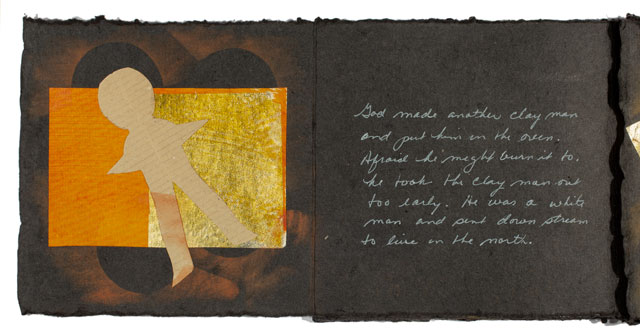 God made another clay man
and put him in the oven.
Afraid he might burn it to.
he took the clay man out
too early. He was a white
man and sent down stream
to live in the north.